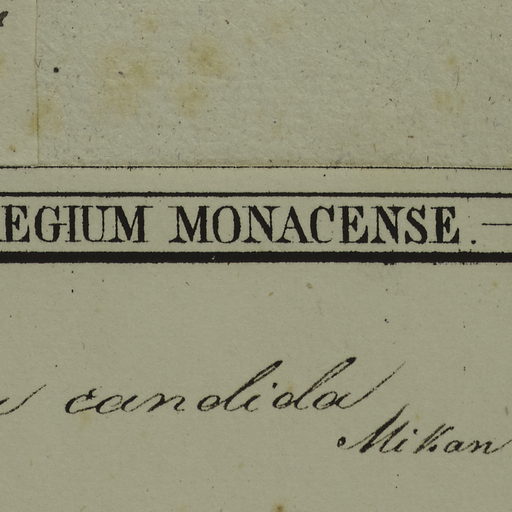 EGIUM MONACENSE. —
candida
Mikan